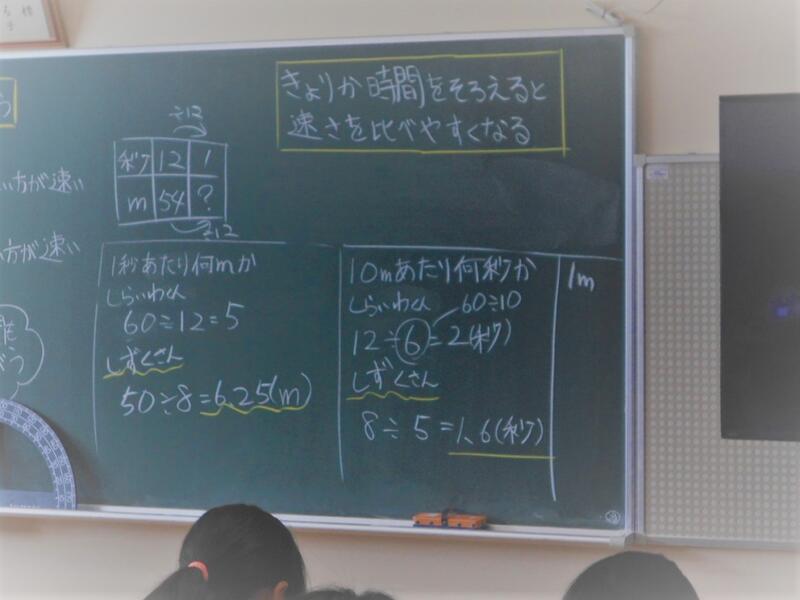 きょりか時間をそろえると
速さを比べやすくなる
÷12
秒 12 1
m 54 ?
÷12
い方が速い
方が速い
1秒あたり何mか
しらいわくん
60÷12=5
しずくさん
50÷8=6.25(m)
10mあたり何秒か
しらいわくん 60÷10
12÷6=2(秒)
しずくさん
8÷5=1.6(秒)
1m